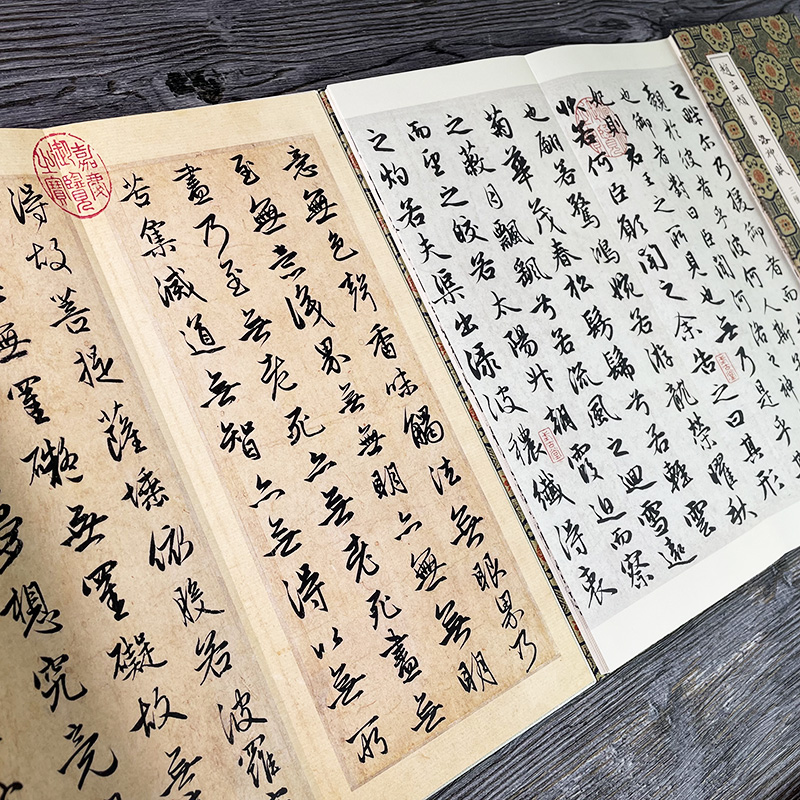 趙孟頫書洛神賦
之畔尔乃援御者而
覿於彼者乎彼何人斯
也御者對曰臣聞河洛之神
君王之所見也無乃是乎
狀若何臣願聞之余告之曰其形
也翩若驚鴻婉若游龍榮曜秋
菊華茂春松髣髴兮若輕雲
之蔽月飄颻兮若流風之迴雪遠
而望之皎若太陽升朝霞迫而察
之灼若夫渠出淥波穠纖得衷
意無色聲香味觸法無眼界乃
至無意識界無無明亦無無明
盡乃至無老死亦無老死盡無
苦集滅道無智亦無得以無所
得故菩提薩埵依般若波羅
無罣礙無罣礙故無
夢想究竟
嘉慶御覽之寶